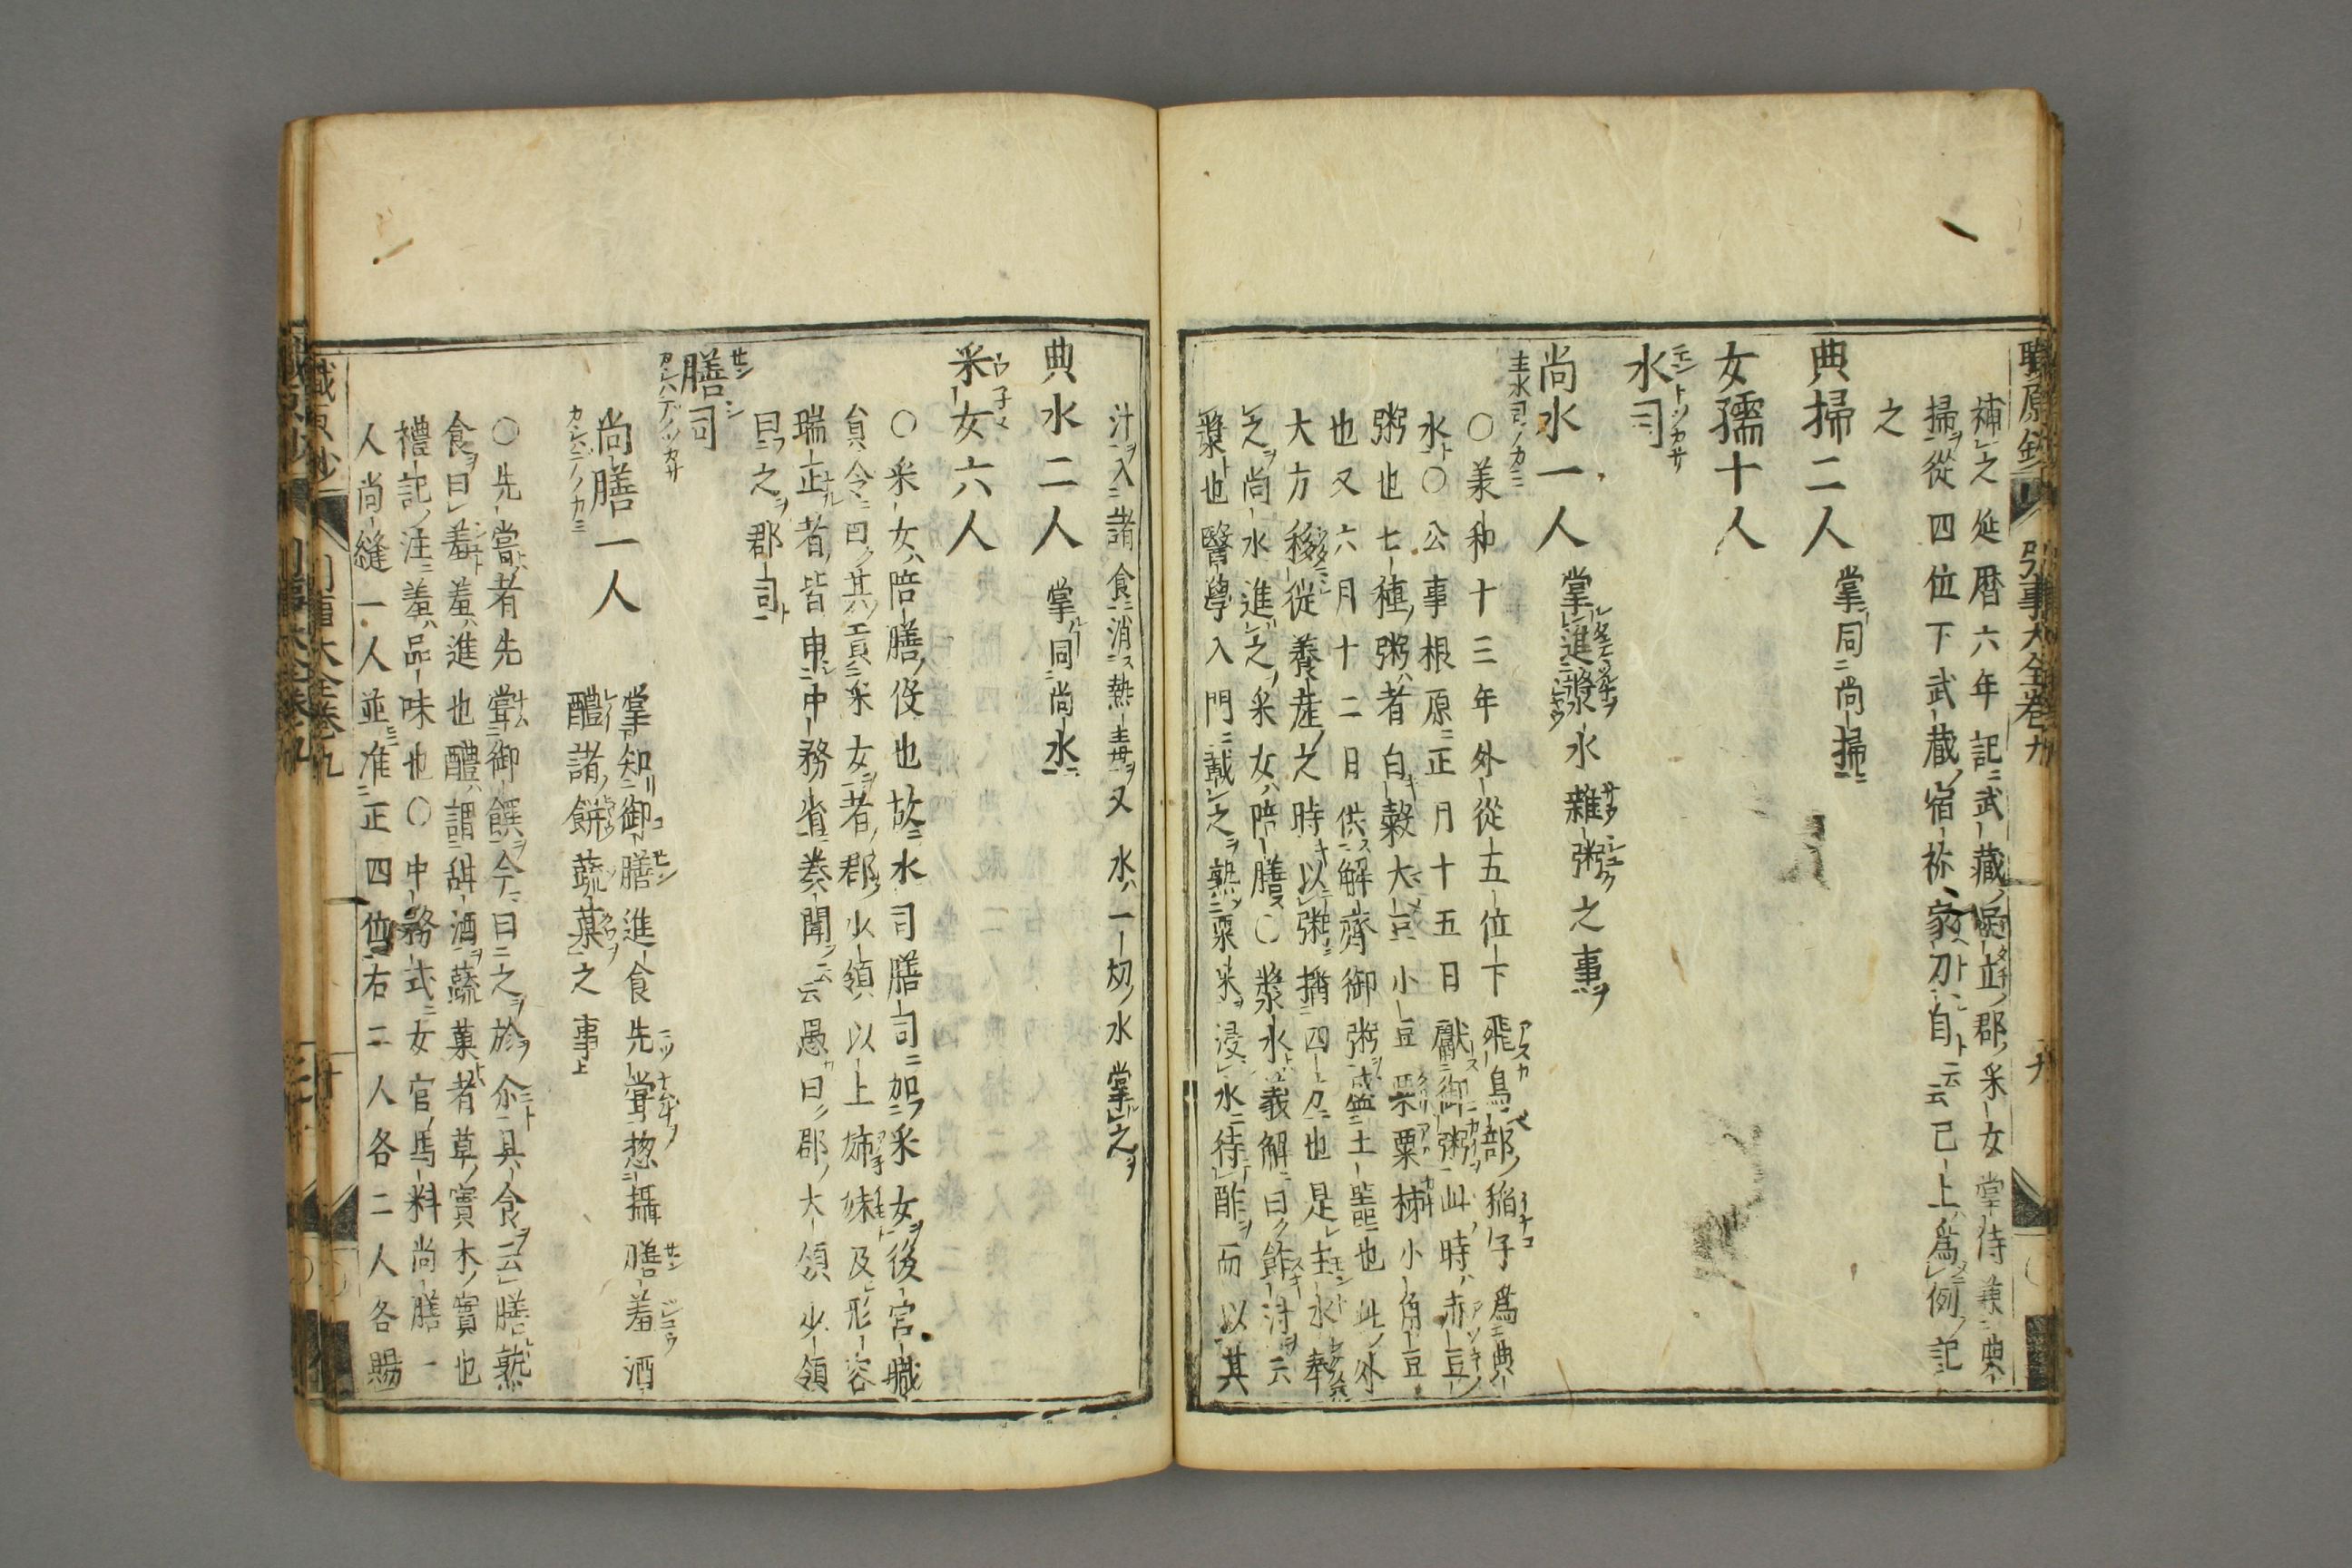 職原鈔 引事大全卷九
補之延暦六年記武藏足立郡采女掌侍兼典
掃從四位下武蔵宿祢家刀自云云已上爲例記
之
典掃二人 掌同尚掃
女孺十人
水司
尚水一人 掌進漿水雜粥之事
○美和十三年外從五位下飛鳥部稲子爲典
水○公事根原正月十五日獻御粥此時赤豆
粥也七種粥者白穀大豆小豆栗柿小角豆
也又六月十二日供解齊御粥盛土器也此外
大方移従養産之時以粥擶四方也是主水奉
之尚水進之采女陪膳○漿水義解曰酢汁云
漿也醫學入門載之熟粟米浸水待酢而以其
汁入諸食消熱主毒又水一切水掌之
典水二人 掌同尚水
采女六人
○采女陪膳役也故水司膳司加采女後宮職
員令曰其貢采女者郡少領以上姉妹及形容
瑞正者皆申中務省奏聞云云愚曰郡大領少領
曰之郡司
膳司
尚膳一人 掌知御膳進食先甞惣攝膳羞酒
醴諸餅蔬菓之事
○先甞者先甞御饌今曰之於尓具食云膳熟
食曰羞羞進也醴謂甜酒蔬菓者草實木實也
禮記注羞品味也○中務式女官馬料尚膳一
人尚縫一人並准正四位右二人各二人各賜